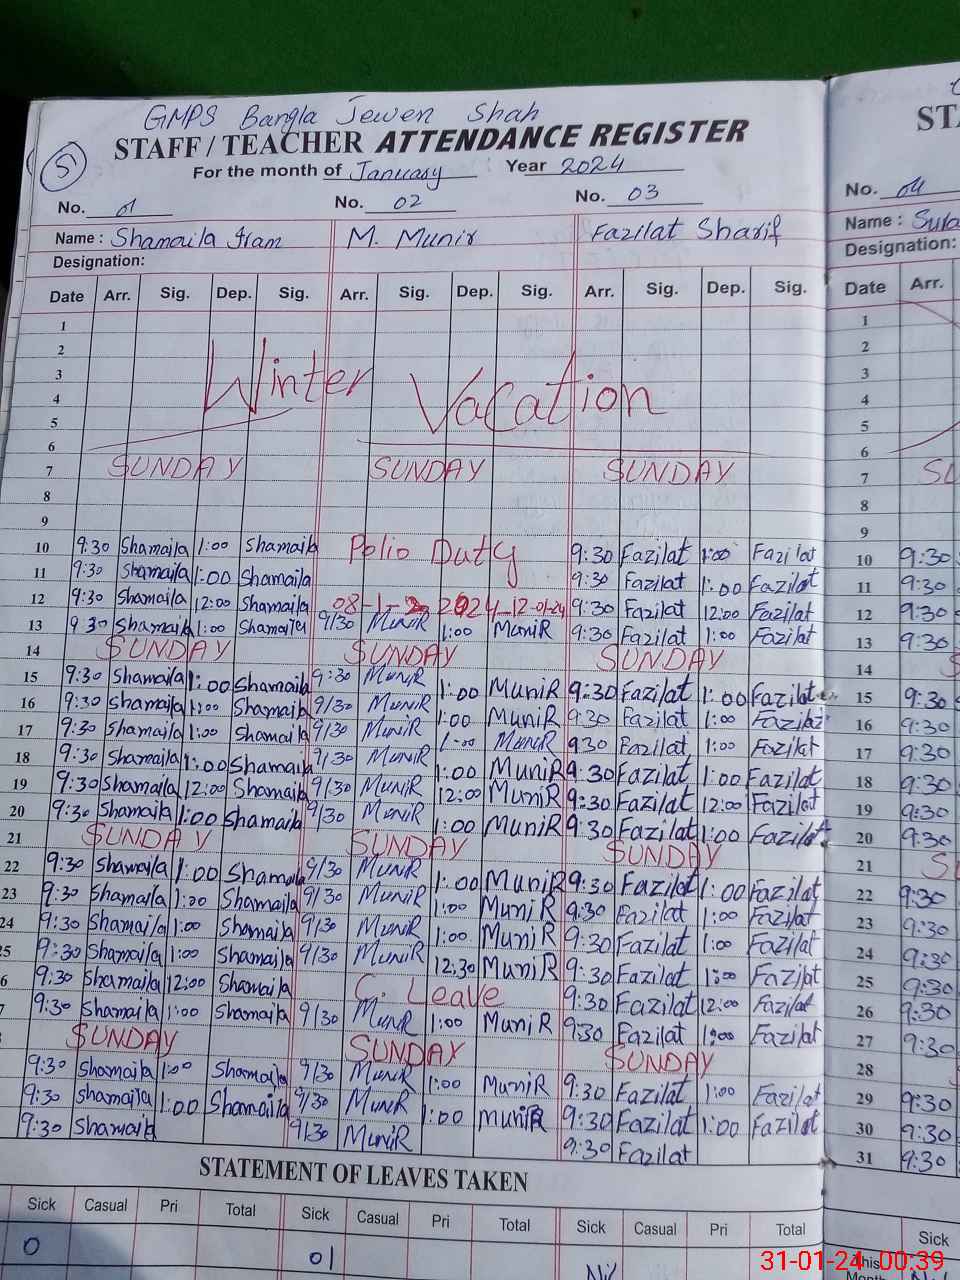 GMPS Bangla Jewen Shah
STAFF / TEACHER ATTENDANCE REGISTER
51 For the month of January Year 2024
No. 01 No. 02 No. 03 No. 04
Name : Shamaila Iram M. Munir Fazilat Sharif Name :
Designation: Designation:
Date Arr. Sig. Dep. Sig. Arr. Sig. Dep. Sig. Arr. Sig. Dep. Sig. Date Arr.
1 1
2 2
3 Winter Vacation 3
4 4
5 5
6 6
7 SUNDAY SUNDAY SUNDAY 7
8 8
9 9
10 9:30 Shamaila 1:00 Shamaila Polio Duty 9:30 Fazilat 1:00 Fazilat 10 9:30
11 9:30 Shamaila 1:00 Shamaila 9:30 Fazilat 1:00 Fazilat 11 9:30
12 9:30 Shamaila 12:00 Shamaila 08-1-2024-12-01-24 9:30 Fazilat 12:00 Fazilat 12 9:30
13 9:30 Shamaila 1:00 Shamaila 9/30 MuniR 1:00 MuniR 9:30 Fazilat 1:00 Fazilat 13 9:30
14 SUNDAY SUNDAY SUNDAY 14
15 9:30 Shamaila 1:00 Shamaila 9:30 MuniR 1:00 MuniR 9:30 Fazilat 1:00 Fazilat 15 9:30
16 9:30 Shamaila 1:00 Shamaila 9/30 MuniR 1:00 MuniR 9:30 Fazilat 1:00 Fazilat 16 9:30
17 9:30 Shamaila 1:00 Shamaila 9/30 MuniR 1:00 MuniR 930 Fazilat 1:00 Fazilat 17 9:30
18 9:30 Shamaila 1:00 Shamaila 9/30 MuniR 1:00 MuniR 9:30 Fazilat 1:00 Fazilat 18 9:30
19 9:30 Shamaila 12:00 Shamaila 9/30 MuniR 12:00 MuniR 9:30 Fazilat 12:00 Fazilat 19 9:30
20 9:30 Shamaila 1:00 Shamaila 9/30 MuniR 1:00 MuniR 9:30 Fazilat 1:00 Fazilat 20 9:30
21 SUNDAY SUNDAY SUNDAY 21
22 9:30 Shamaila 1:00 Shamaila 9/30 MuniR 1:00 MuniR 9:30 Fazilat 1:00 Fazilat 22 9:30
23 9:30 Shamaila 1:00 Shamaila 9/30 MuniR 1:00 MuniR 9:30 Fazilat 1:00 Fazilat 23 9:30
24 9:30 Shamaila 1:00 Shamaila 9/30 MuniR 1:00 MuniR 9:30 Fazilat 1:00 Fazilat 24 9:30
9:30 Shamaila 1:00 Shamaila 9/30 MuniR 12:30 MuniR 9:30 Fazilat 1:00 Fazilat 25 9:30
9:30 Shamaila 12:00 Shamaila C. Leave 9:30 Fazilat 12:00 Fazilat 26 9:30
9:30 Shamaila 1:00 Shamaila 9/30 MuniR 1:00 MuniR 9:30 Fazilat 1:00 Fazilat 27 9:30
SUNDAY SUNDAY SUNDAY 28
9:30 Shamaila 1:00 Shamaila 9/30 MuniR 1:00 MuniR 9:30 Fazilat 1:00 Fazilat 29 9:30
9:30 Shamaila 1:00 Shamaila 9/30 MuniR 1:00 MuniR 9:30 Fazilat 1:00 Fazilat 30 9:30
9:30 Shamaila 9/30 MuniR 9:30 Fazilat 31 9:30
STATEMENT OF LEAVES TAKEN
Sick Casual Pri Total Sick Casual Pri Total Sick Casual Pri Total Sick
0 01 Nil This Month
31-01-24 00:39